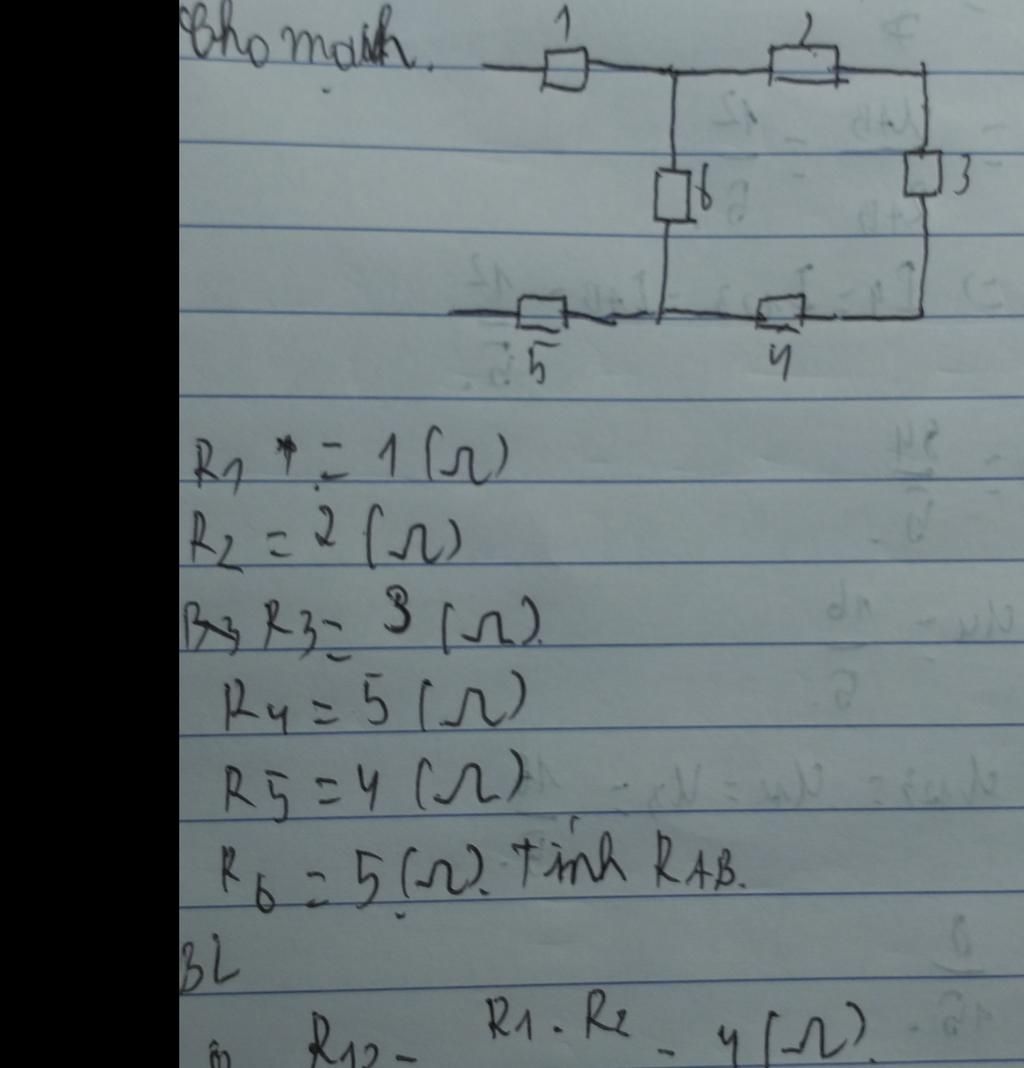 Cho mạch.
1
2
3
6
5
4
R1 = 1 (Ω)
R2 = 2 (Ω)
R3 R3 = 3 (Ω).
R4 = 5 (Ω)
R5 = 4 (Ω)
R6 = 5 (Ω). tính RAB.
BL
R12 = R1 . R2 = 4 (Ω).